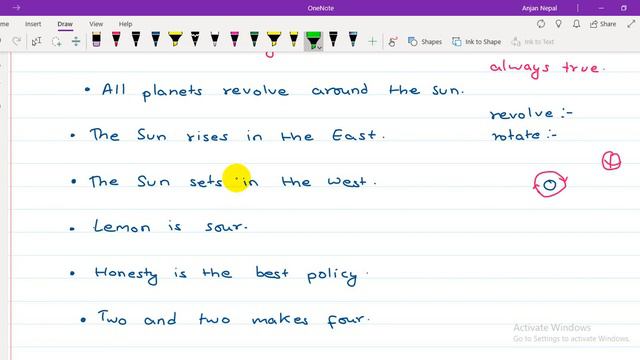 OneNote
Anjan Nepal
File
Home
Insert
Draw
View
Help
Shapes
Ink to Shape
Ink to Text
always true.
• All planets revolve around the sun.
revolve :-
• The Sun rises in the East.
rotate :-
• The Sun sets in the west.
• Lemon is sour.
• Honesty is the best policy.
• Two and two makes four.
Activate Windows
Go to Settings to activate Windows.